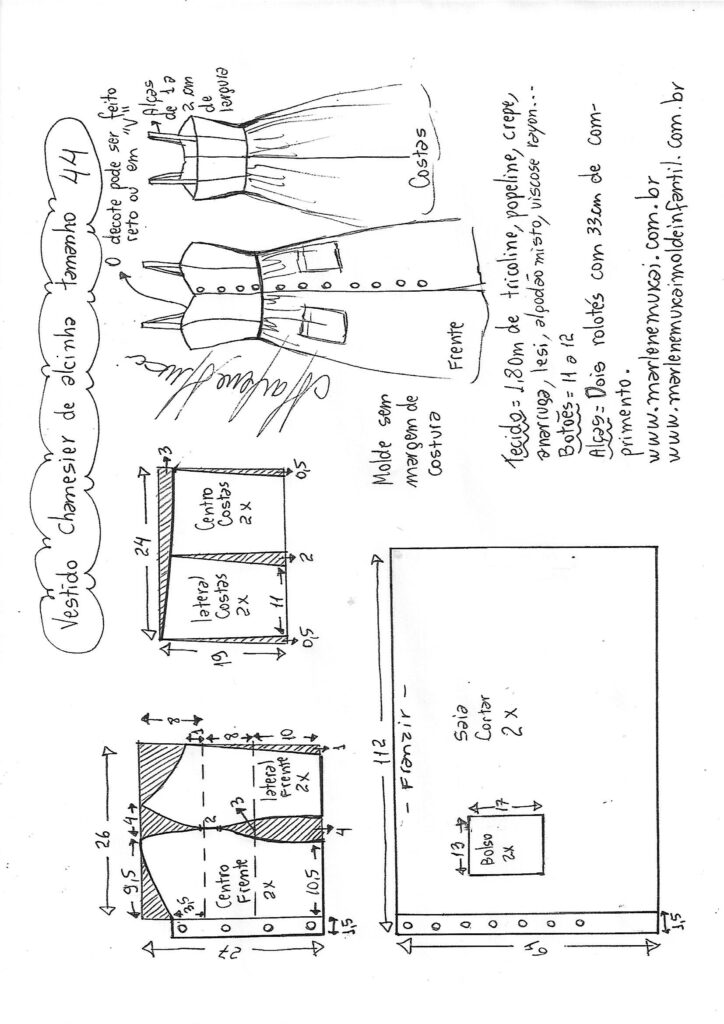 Vestido Chamesier de alcinha tamanho 44
O decote pode ser feito
reto ou em "V"
Alças
de 1 a
2 cm
de
largura
Costas
Frente
Molde sem
margem de
costura
Tecido = 1,80m de tricoline, popeline, crepe,
anarruga, lesi, algodão misto, viscose rayon...
Botões = 11 a 12
Alças = Dois rolotés com 33cm de com-
primento.
www.marlenemukai.com.br
www.marlenemukaimoldeinfantil.com.br
24
3
19
lateral
Costas
2x
Centro
Costas
2x
0,5
11
2
0,5
26
9,5
4
8
1
8
10
2
3
3,5
Centro
Frente
2x
lateral
Frente
2x
10,5
4
1
27
1,5
112
- Franzir -
Saia
Cortar
2x
13
17
Bolso
2x
1,5